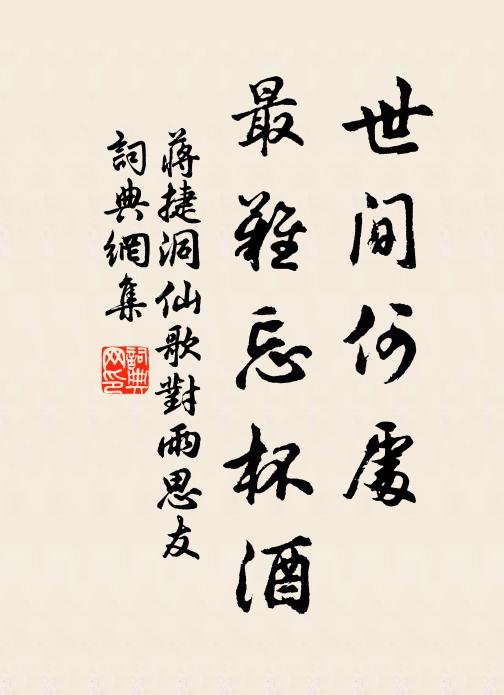 世間何處
最難忘杯酒
蔣捷洞仙歌對雨思友
詞典網集
詞典网印